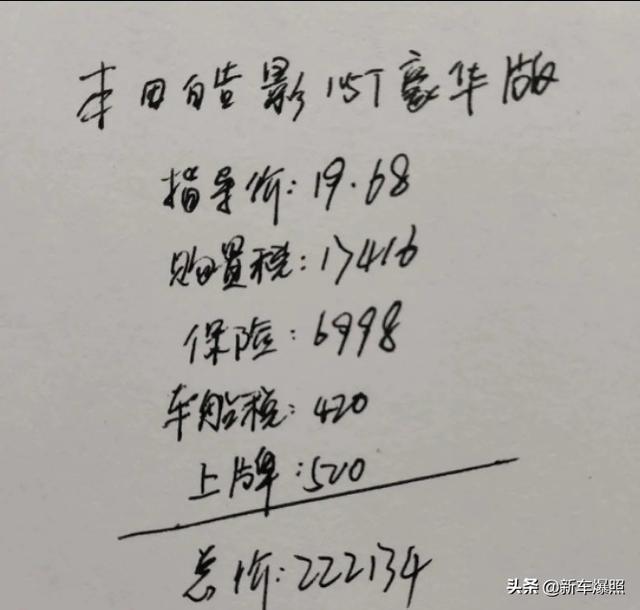 本田皓影15T豪华版
指导价:19.68
购置税:17416
保险:6998
车船税:420
上牌:520
总价:222134
头条 @新车爆照